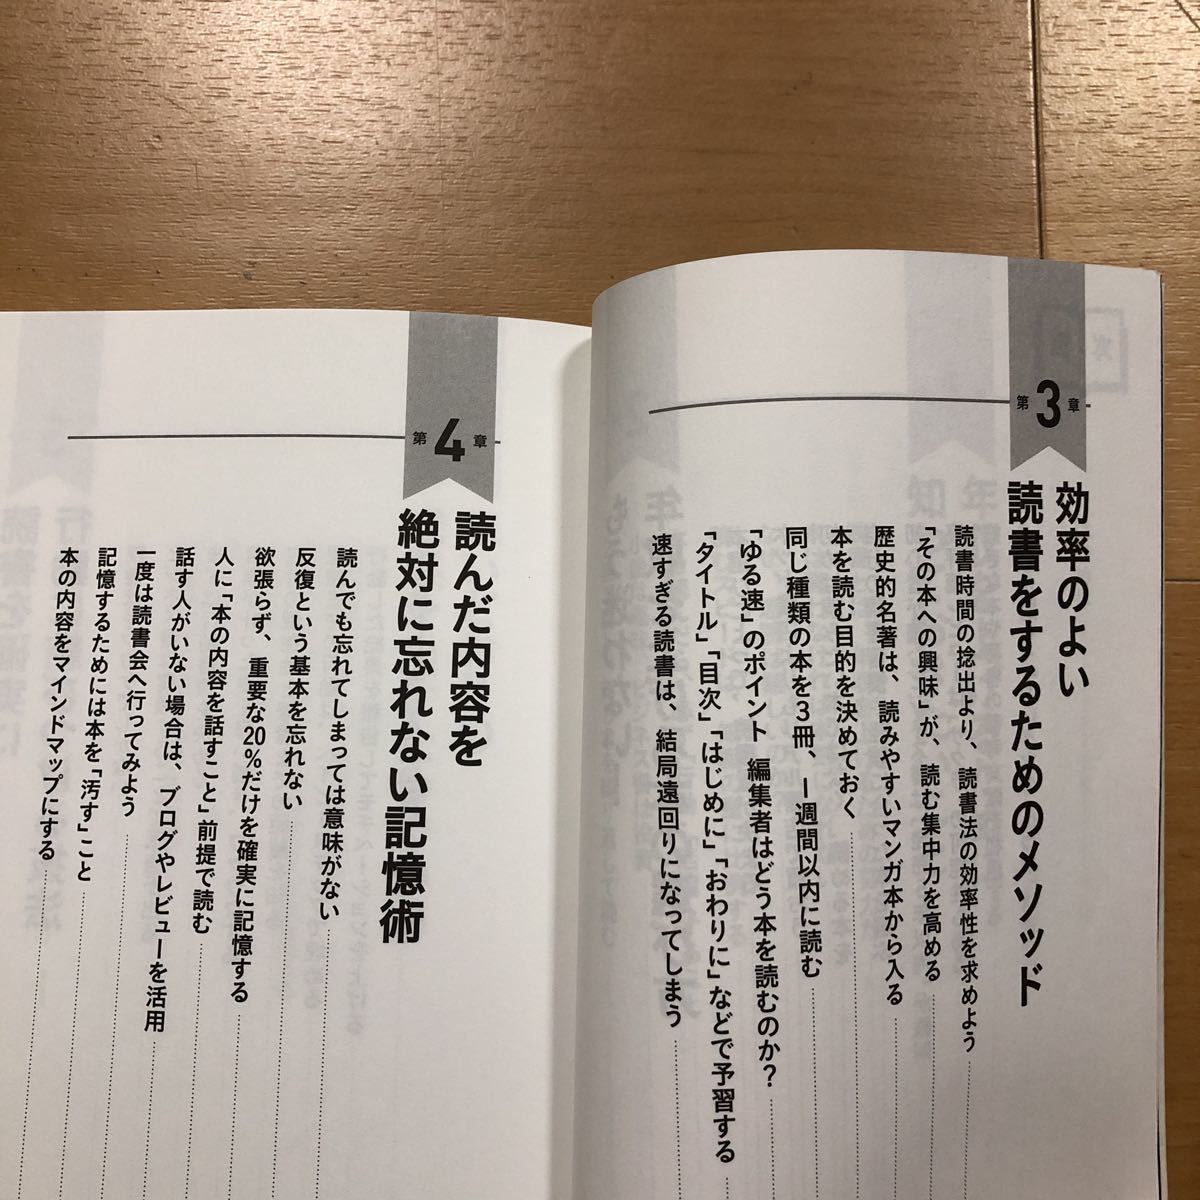 第3章
効率のよい
読書をするためのメソッド
読書時間の捻出より、読書法の効率性を求めよう
「その本への興味」が、読む集中力を高める
歴史的名著は、読みやすいマンガ本から入る
本を読む目的を決めておく
同じ種類の本を3冊、1週間以内に読む
「ゆる速」のポイント 編集者はどう本を読むのか?
「タイトル」「目次」「はじめに」「おわりに」などで予習する
速すぎる読書は、結局遠回りになってしまう
第4章
読んだ内容を
絶対に忘れない記憶術
読んでも忘れてしまっては意味がない
反復という基本を忘れない
欲張らず、重要な20%だけを確実に記憶する
人に「本の内容を話すこと」前提で読む
話す人がいない場合は、ブログやレビューを活用
一度は読書会へ行ってみよう
記憶するためには本を「汚す」こと
本の内容をマインドマップにする